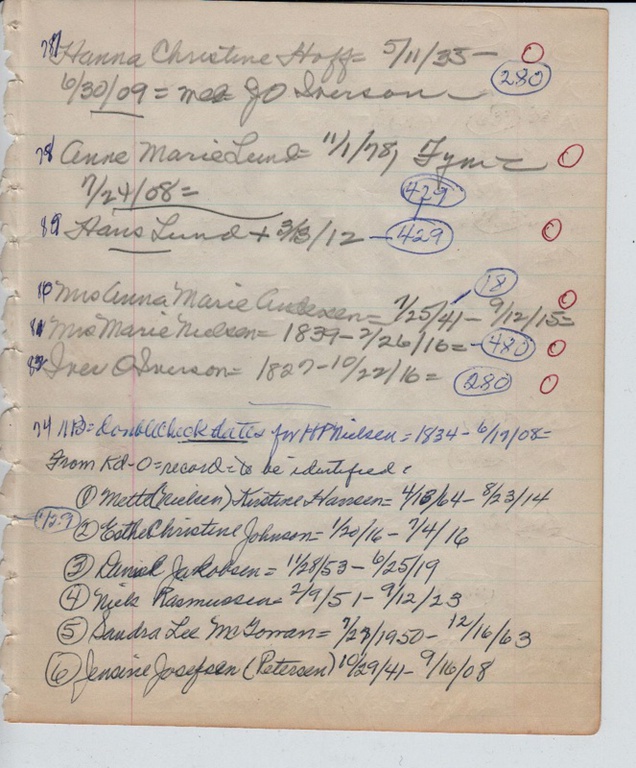 78 Hanna Christine Hoff = 5/11/35 - O
6/30/09 = nee JO Iverson 280
79 Anne Marie Lund = 11/1/78, Fyn - O
7/24/08 = 429
80 Hans Lund + 3/13/12 - 429 O
18
Mrs Anna Marie Andersen = 7/25/41 - 9/12/15 = O
Mrs Marie Nielsen = 1839 - 2/26/16 = - 480 O
83 Iver O Iverson = 1827 - 10/22/16 = 280 O
74 NB = double check dates for HP Nielsen = 1834 - 6/17/08 =
From Kd-O = record = to be identified:
① Mette (Nielsen) Kirstine Hansen = 4/13/64 - 8/23/14
② Esther Christine Johnson = 1/20/16 - 7/4/16
③ Daniel Jakobsen = 11/28/53 - 6/25/19
④ Niels Rasmussen = 2/9/51 - 9/12/23
⑤ Sandra Lee McGowan = 7/23/1950 - 12/16/63
⑥ Jensine Josefsen (Petersen) 10/29/41 - 9/16/08